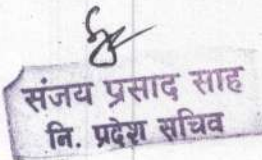 संजय प्रसाद साह
नि. प्रदेश सचिव